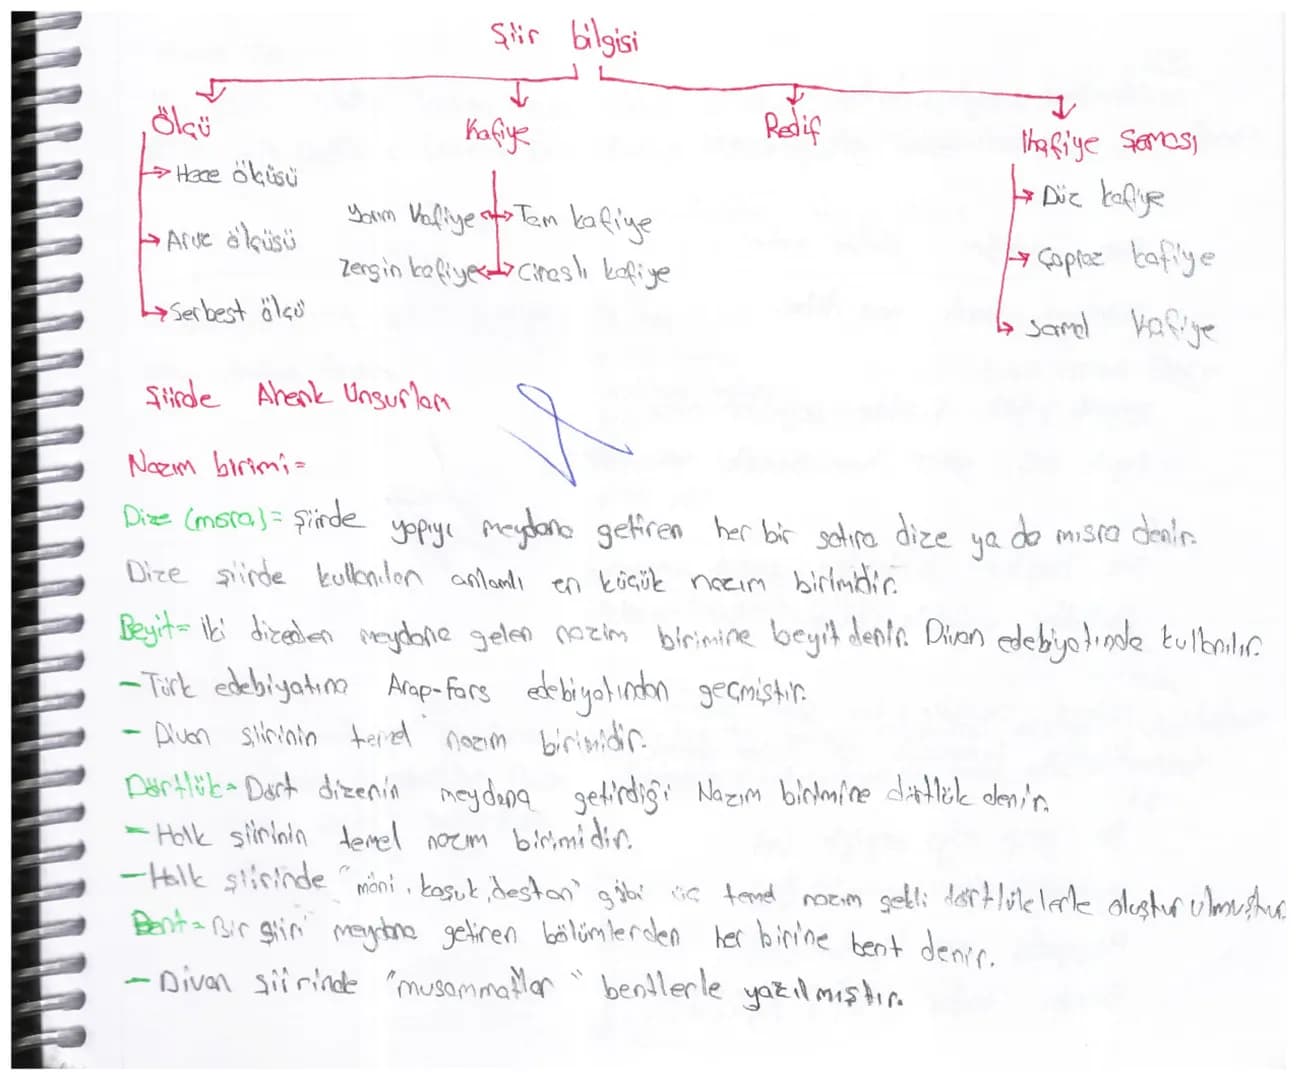 Şiir bilgisi
Ölçü
Kafiye
Redif
Kafiye Şeması
Hece ölçüsü
Aruz ölçüsü
Serbest ölçü
Yarım Kafiye
Tam kafiye
Zengin kafiye
Cinaslı kafiye
Düz kafiye
Çapraz kafiye
Sarmal kafiye
Şiirde Ahenk Unsurları
Nazım birimi=
Dize (mısra)= Şiirde yapıyı meydana getiren her bir satıra dize ya da mısra denir.
Dize şiirde kullanılan anlamlı en küçük nazım birimidir.
Beyit= İki dizeden meydana gelen nazım birimine beyit denir. Divan edebiyatında kullanılır.
- Türk edebiyatına Arap-Fars edebiyatından geçmiştir.
- Divan şiirinin temel nazım birimidir.
Dörtlük= Dört dizenin meydana getirdiği Nazım birimine dörtlük denir.
- Halk şiirinin temel nazım birimidir.
- Halk şiirinde "mâni, koşuk, destan" gibi üç temel nazım şekli dörtlüklerle oluşturulmuştur.
Bent= Bir şiiri meydana getiren bölümlerden her birine bent denir.
- Divan şiirinde "musammatlar" bentlerle yazılmıştır.